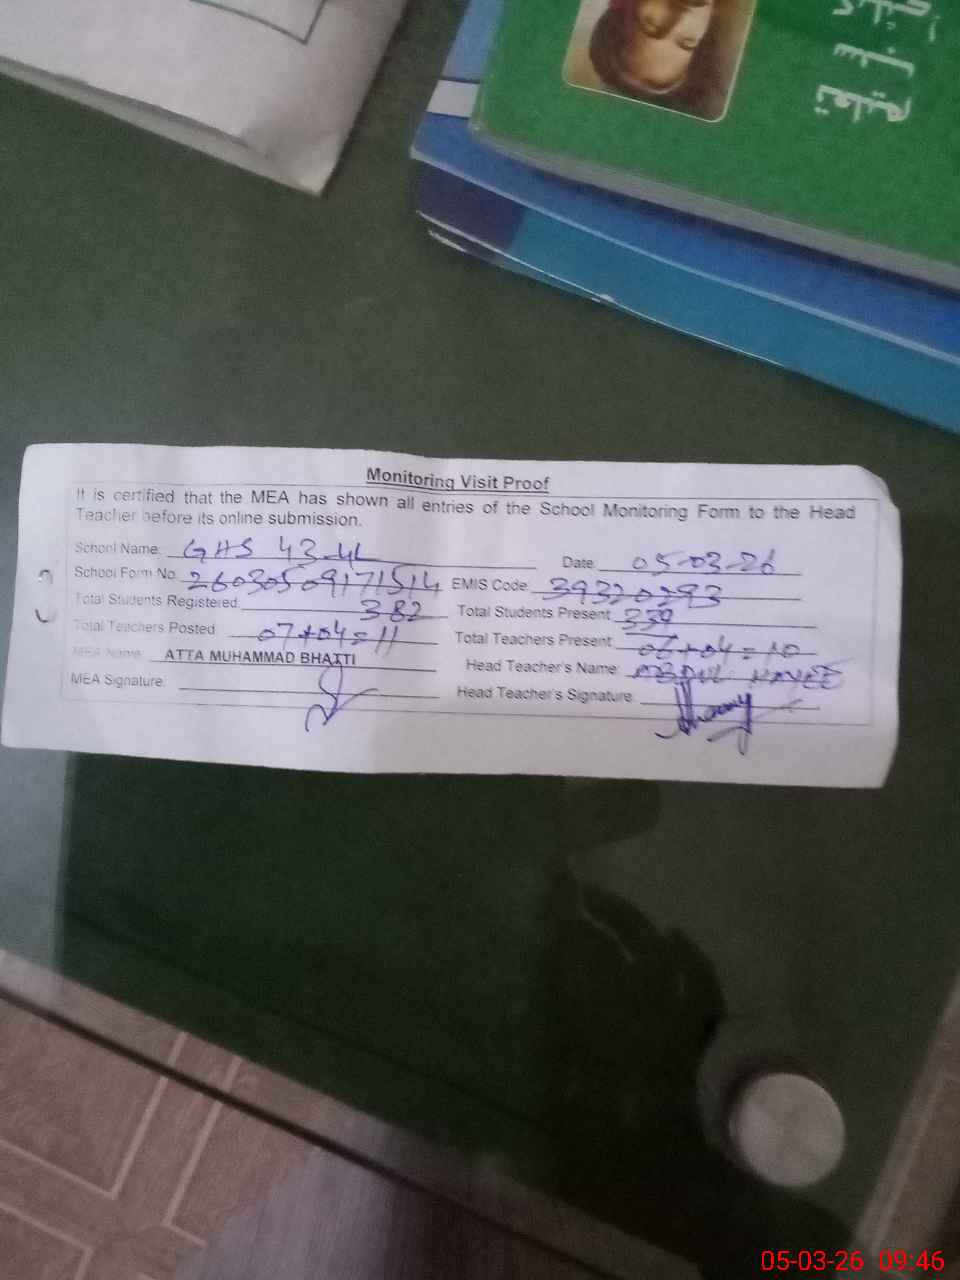 تعلیم
Monitoring Visit Proof
It is certified that the MEA has shown all entries of the School Monitoring Form to the Head
Teacher before its online submission.
School Name: GHS 43-4L Date 05-03-26
School Form No. 26030509171514 EMIS Code: 39320293
Total Students Registered: 382 Total Students Present: 339
Total Teachers Posted 07+04=11 Total Teachers Present: 06+04=10
MEA Name: ATTA MUHAMMAD BHATTI Head Teacher's Name: ABDUL HAYEE
MEA Signature: Head Teacher's Signature:
05-03-26 09:46